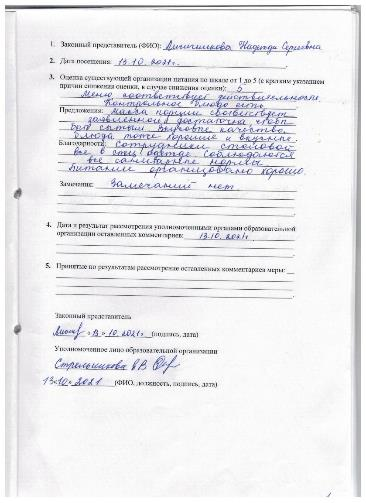 1. Законный представитель (ФИО): Надежда Сергеевна
2. Дата посещения 13.10.2021г.
3. Оценка существующей организации питания по шкале от 1 до 5 (с кратким указанием
причин снижения оценки, в случае снижения оценки): 5
Меню соответствует действительности
Контрольное блюдо есть.
Предложения: Масса порции соответствует
заявленной и достаточна чтоб
быть сытым. Вкусовые качества
блюда тоже хорошие и вкусные.
Благодарности: Сотрудники столовой
все в спец одежде. Соблюдаются
все санитарные нормы
Питание организовано хорошо.
Замечания: Замечаний нет
4. Дата и результат рассмотрения уполномоченными органами образовательной
организации оставленных комментариев: 13.10.2021г
5. Принятые по результатам рассмотрение оставленных комментариев меры:
Законный представитель
«13».10.2021г. (подпись, дата)
Уполномоченное лицо образовательной организации
Стрельникова
13«10»2021 (ФИО, должность, подпись, дата)